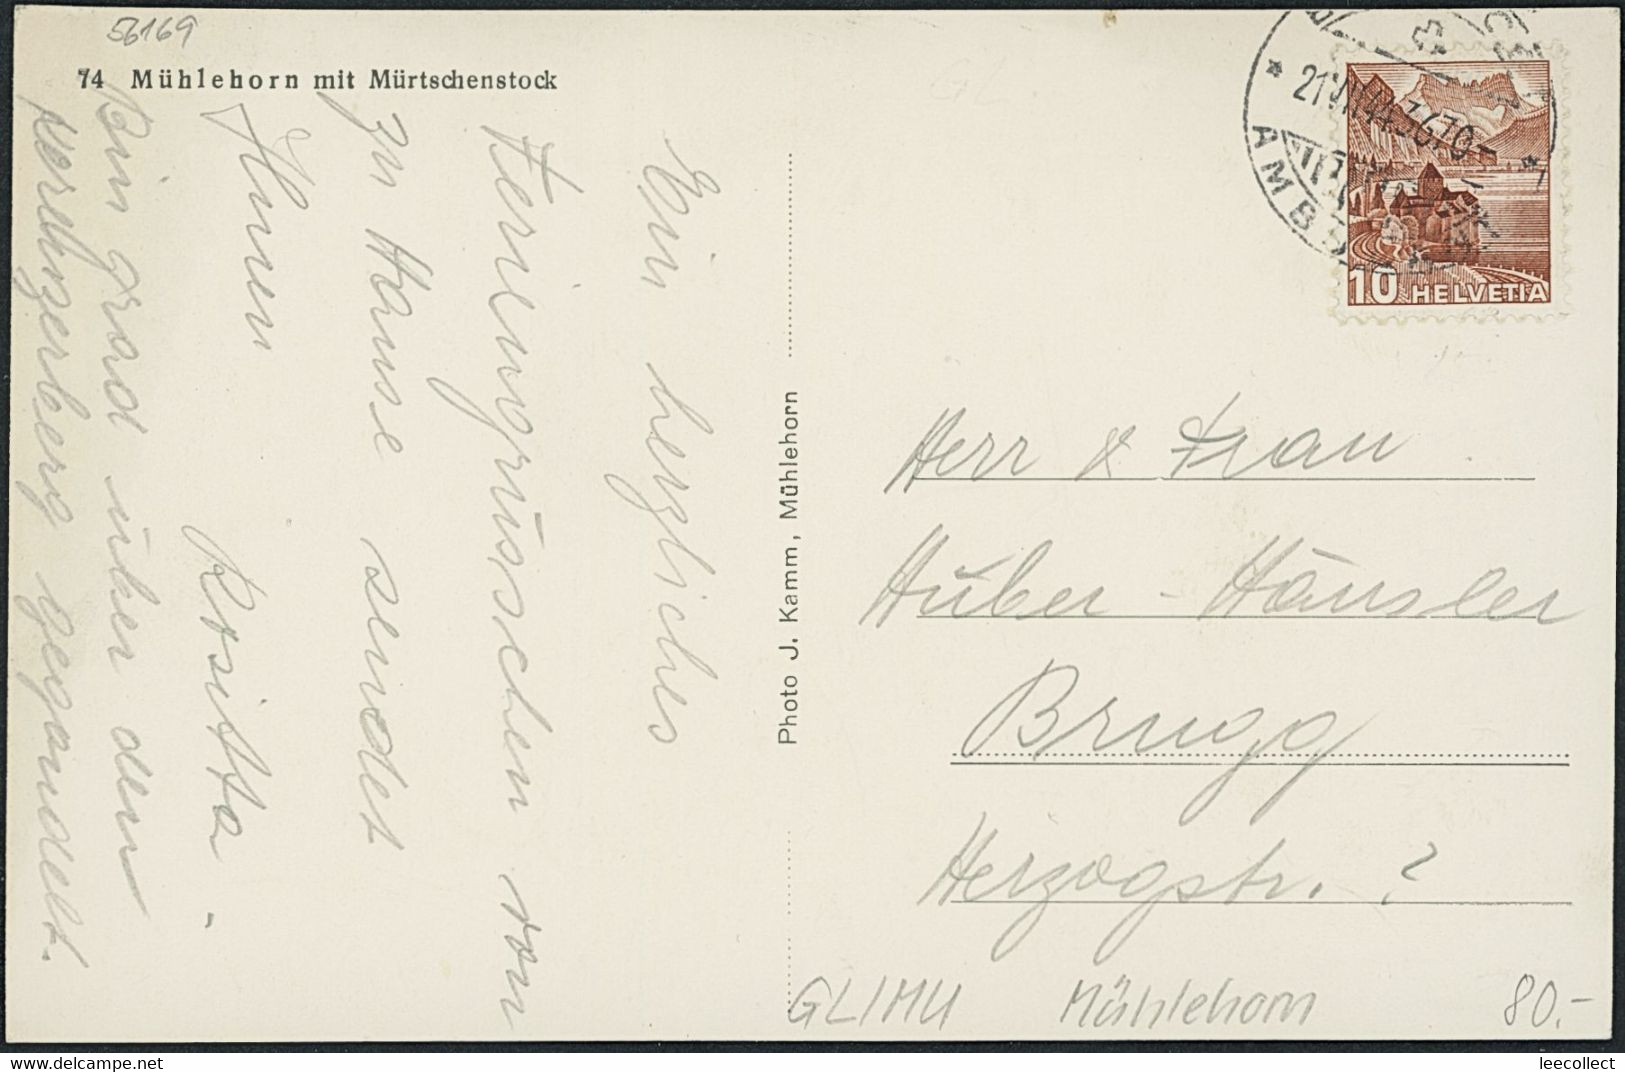 56169
74 Mühlehorn mit Mürtschenstock
Ein herzliches
Feriengrüsschen von
zu Hause sendet
Ihnen
Rositta.
Bin grad über den
Kerenzerberg gegandelt.
Photo J. Kamm, Mühlehorn
21.VII.44.
AMBU
10 HELVETIA
Herr & Frau
Huber-Häusler
Brugg
Herzogstr. ?
GLIMU Mühlehorn 80.-
leecollect